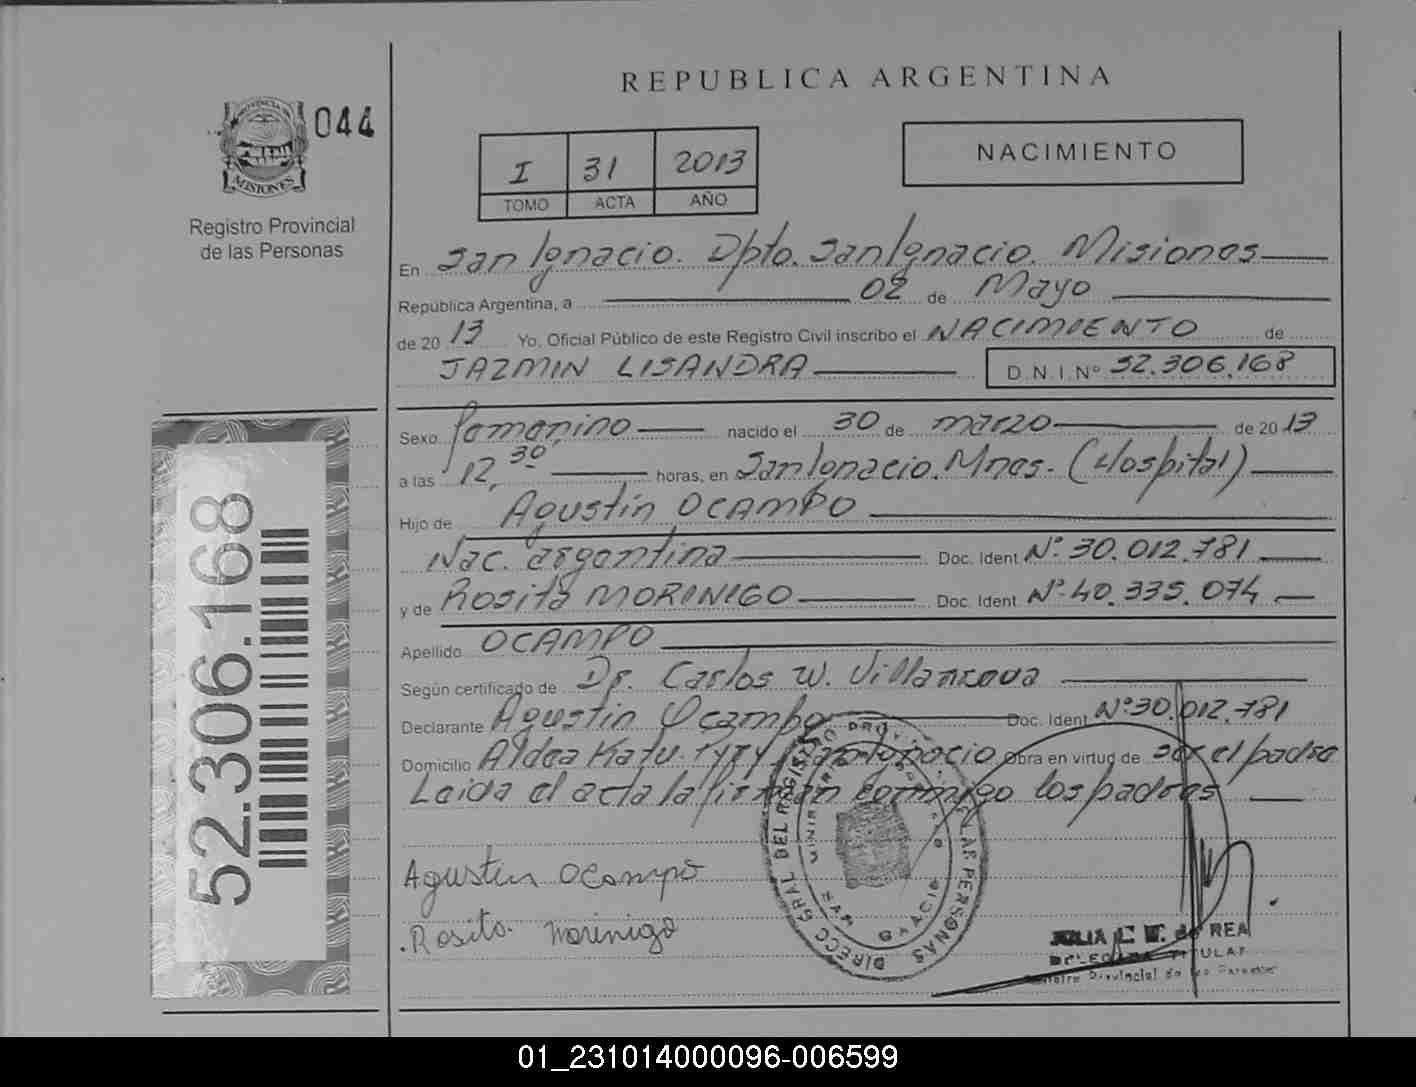 REPUBLICA ARGENTINA
PROVINCIA DE
MISIONES
044
Registro Provincial
de las Personas
I 31 2013
TOMO ACTA AÑO
NACIMIENTO
En San Ignacio. Dpto. San Ignacio. Misiones
República Argentina, a 02 de Mayo
de 2013 Yo. Oficial Público de este Registro Civil inscribo el NACIMIENTO de
JAZMIN LISANDRA D.N.I.Nº 52.306.168
Sexo femenino nacido el 30 de marzo de 2013
a las 12,30 horas, en San Ignacio. Mnes. (Hospital)
Hijo de Agustín OCAMPO
Nac. argentina Doc. Ident Nº 30.012.781
y de Rosita MORINIGO Doc. Ident Nº 40.335.074
Apellido OCAMPO
Según certificado de Dr. Carlos W. Villanueva
Declarante Agustín Ocampo Doc. Ident Nº 30.012.781
Domicilio Aldea Katu-Pyry San Ignacio Obra en virtud de ser el padre
Leida el acta la firman conmigo los padres
Agustin Ocampo
Rosita Morinigo
DIRECC GRAL DEL REGISTRO PROV. DE LAS PERSONAS
SAN IGNACIO
JULIA REA
DELEGADA TITULAR
Registro Provincial de las Personas
52.306.168
01_231014000096-006599